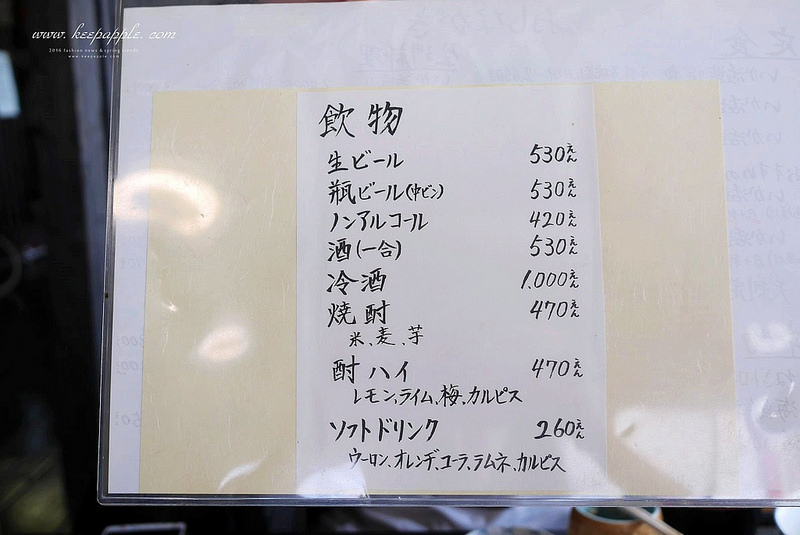 www.keepapple.com
2016 fashion news & spring trends
www.keepapple.com
飲物
生ビール 530えん
瓶ビール(中ビン) 530えん
ノンアルコール 420えん
酒(一合) 530えん
冷酒 1,000えん
焼酎 470えん
米、麦、芋
酎ハイ 470えん
レモン、ライム、梅、カルピス
ソフトドリンク 260えん
ウーロン、オレンヂ、コーラ、ラムネ、カルピス